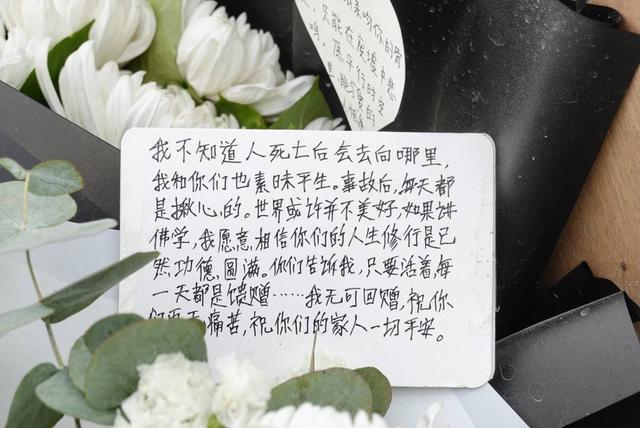 吻你的骨
只能在废墟中悲
鸣。愿平行时空
里,能与爱的
人
我不知道人死亡后会去向哪里,
我和你们也素昧平生。事故后,每天都
是揪心的。世界或许并不美好,如果讲
佛学,我愿意相信你们的人生修行是已
然功德圆满。你们告诉我,只要活着,每
一天都是馈赠……我无可回赠,祝你
痛苦,祝你们的家人一切平安。